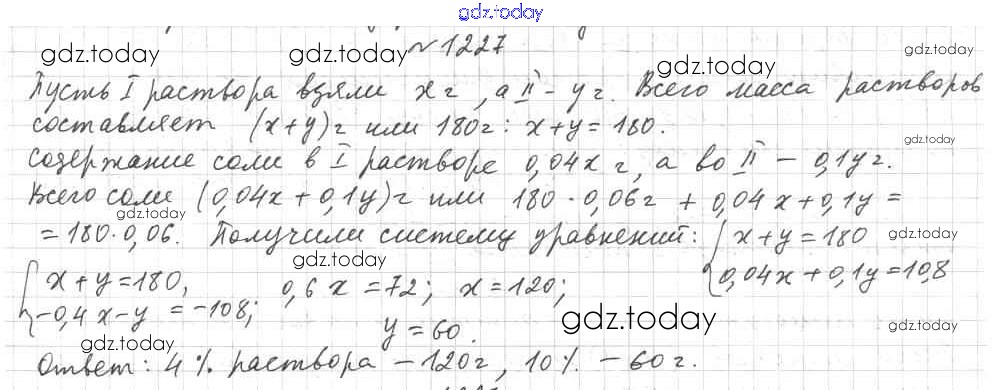 gdz.today
№ 1227
gdz.today gdz.today gdz.today gdz.today
Пусть I раствора взяли x г, а II – y г. Всего масса растворов
составляет (x+y) г или 180 г: x+y=180.
gdz.today
Содержание соли в I растворе 0,04x г, а во II – 0,1y г.
Всего соли (0,04x+0,1y) г или 180·0,06 г + 0,04x+0,1y =
gdz.today
= 180·0,06. Получили систему уравнений: { x+y=180
gdz.today
0,04x+0,1y=10,8
gdz.today
{ x+y=180, 0,6x=72; x=120;
-0,4x-y=-108;
y=60.
gdz.today gdz.today gdz.today
Ответ: 4% раствора – 120 г, 10% – 60 г.